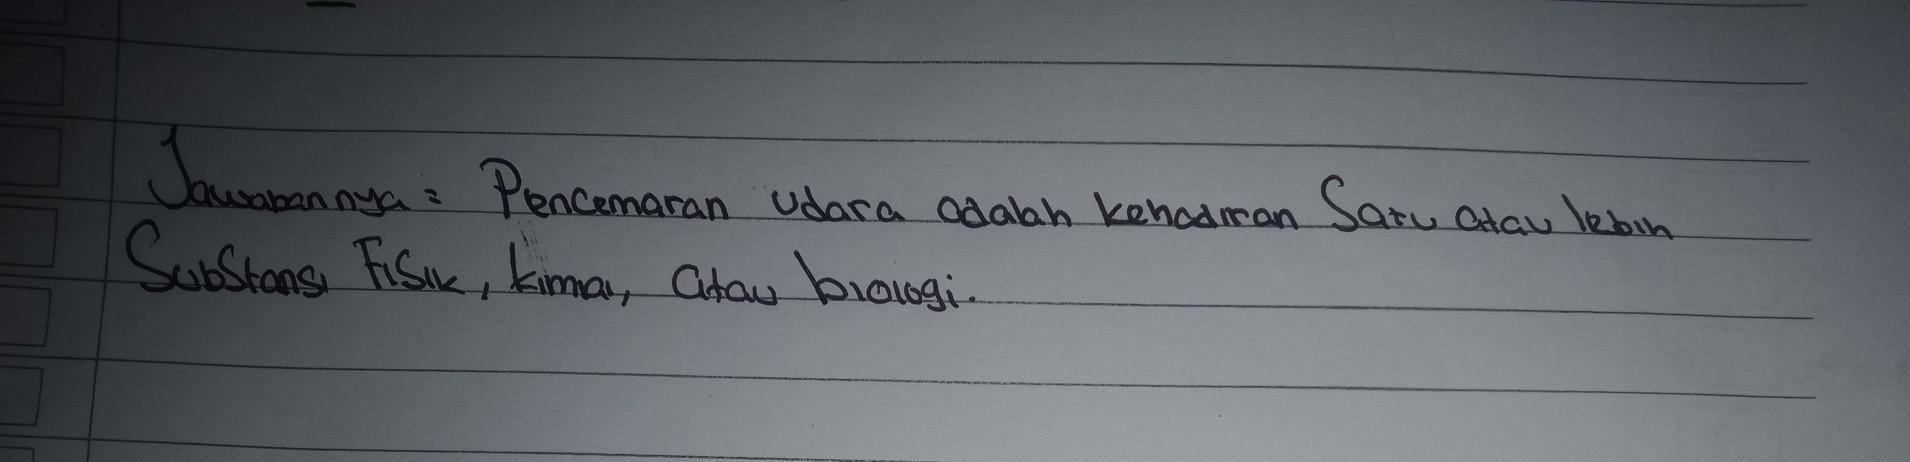 Jawabannya : Pencemaran udara adalah kehadiran Satu atau lebih
Substansi Fisik, kimia, atau biologi.